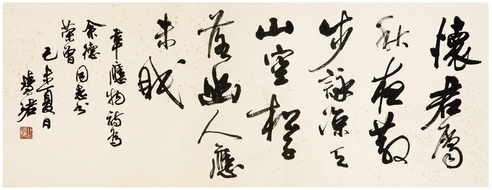 懷君屬
秋夜散
步詠涼天
山空松子
落幽人應
未眠
韋應物詩為
余德
同志書
己未夏日